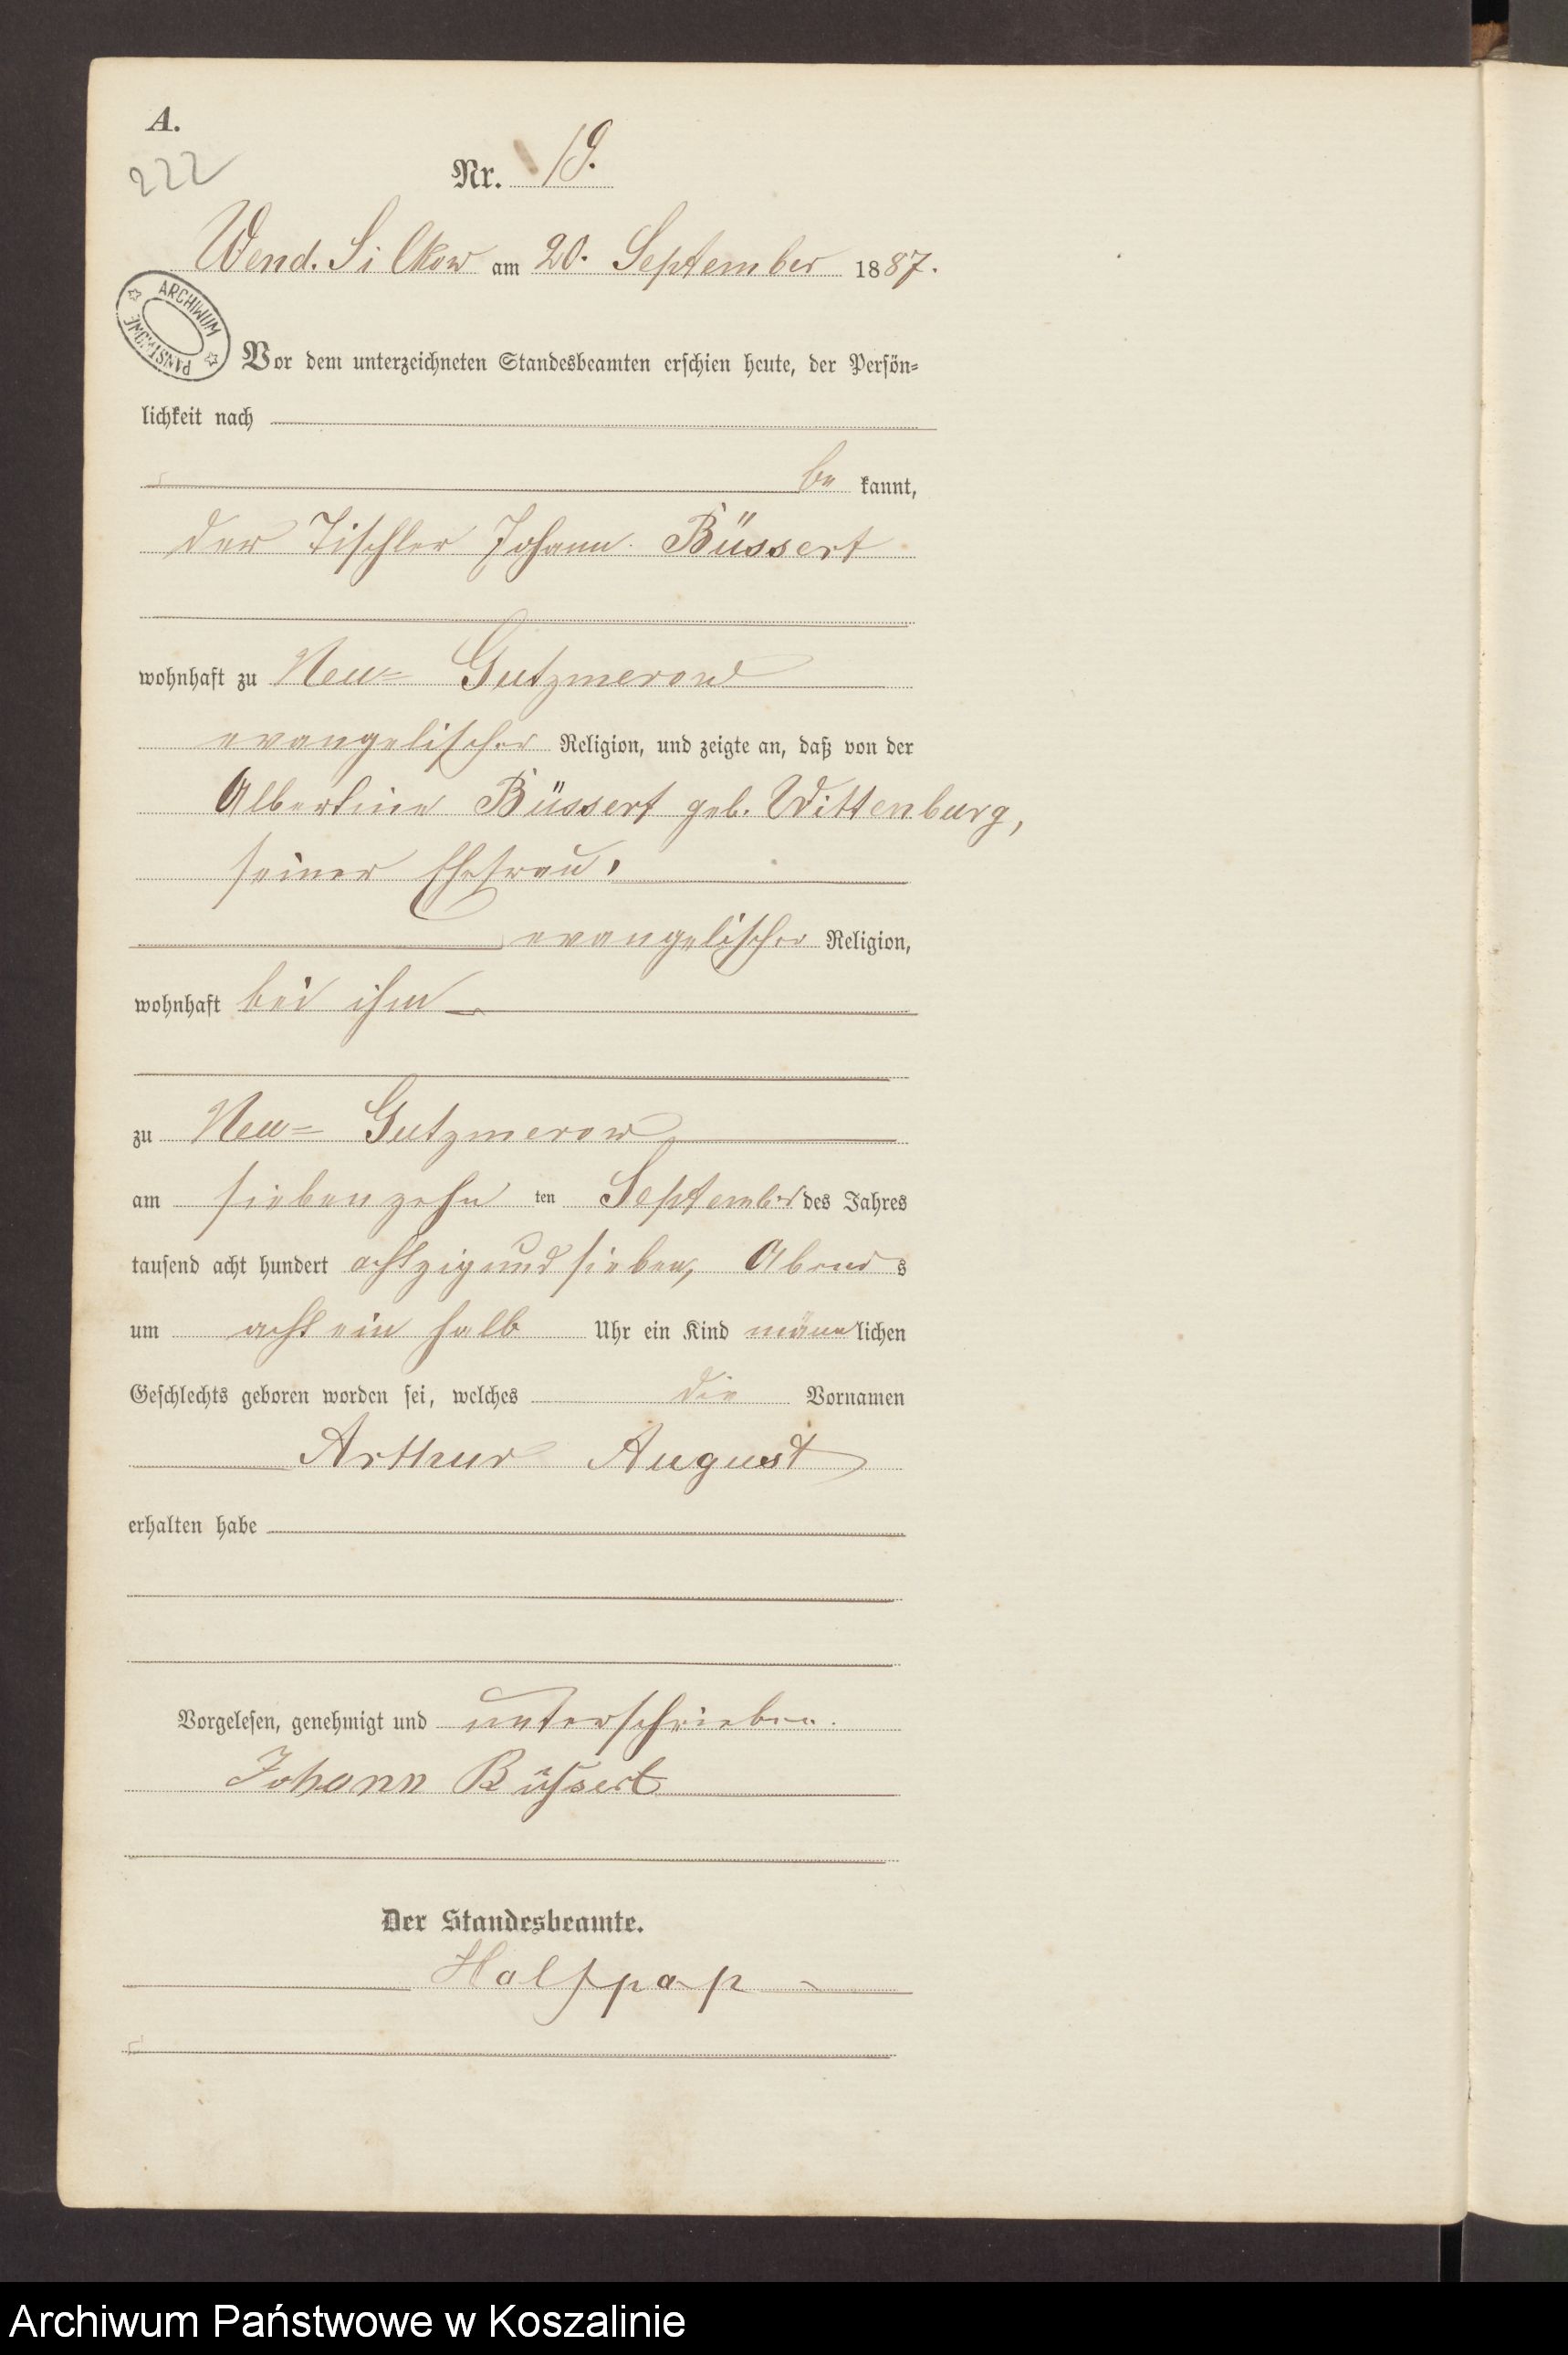 A.
222
Nr. 19.
Wend. Silkow am 20. September 1887.
ARCHIWUM PAŃSTWOWE
Vor dem unterzeichneten Standesbeamten erschien heute, der Persön=
lichkeit nach
be kannt,
der Tischler Johann Büssert
wohnhaft zu Neu= Gutzmerow
evangelischer Religion, und zeigte an, daß von der
Albertine Büssert geb. Wittenburg,
seiner Ehefrau,
evangelischer Religion,
wohnhaft bei ihm
zu Neu= Gutzmerow
am siebenzehn ten September des Jahres
tausend acht hundert achtzig und sieben, Abends
um acht ein halb Uhr ein Kind männlichen
Geschlechts geboren worden sei, welches die Vornamen
Arthur August
erhalten habe
Vorgelesen, genehmigt und unterschrieben.
Johann Büssert
Der Standesbeamte.
Halfpap
Archiwum Państwowe w Koszalinie